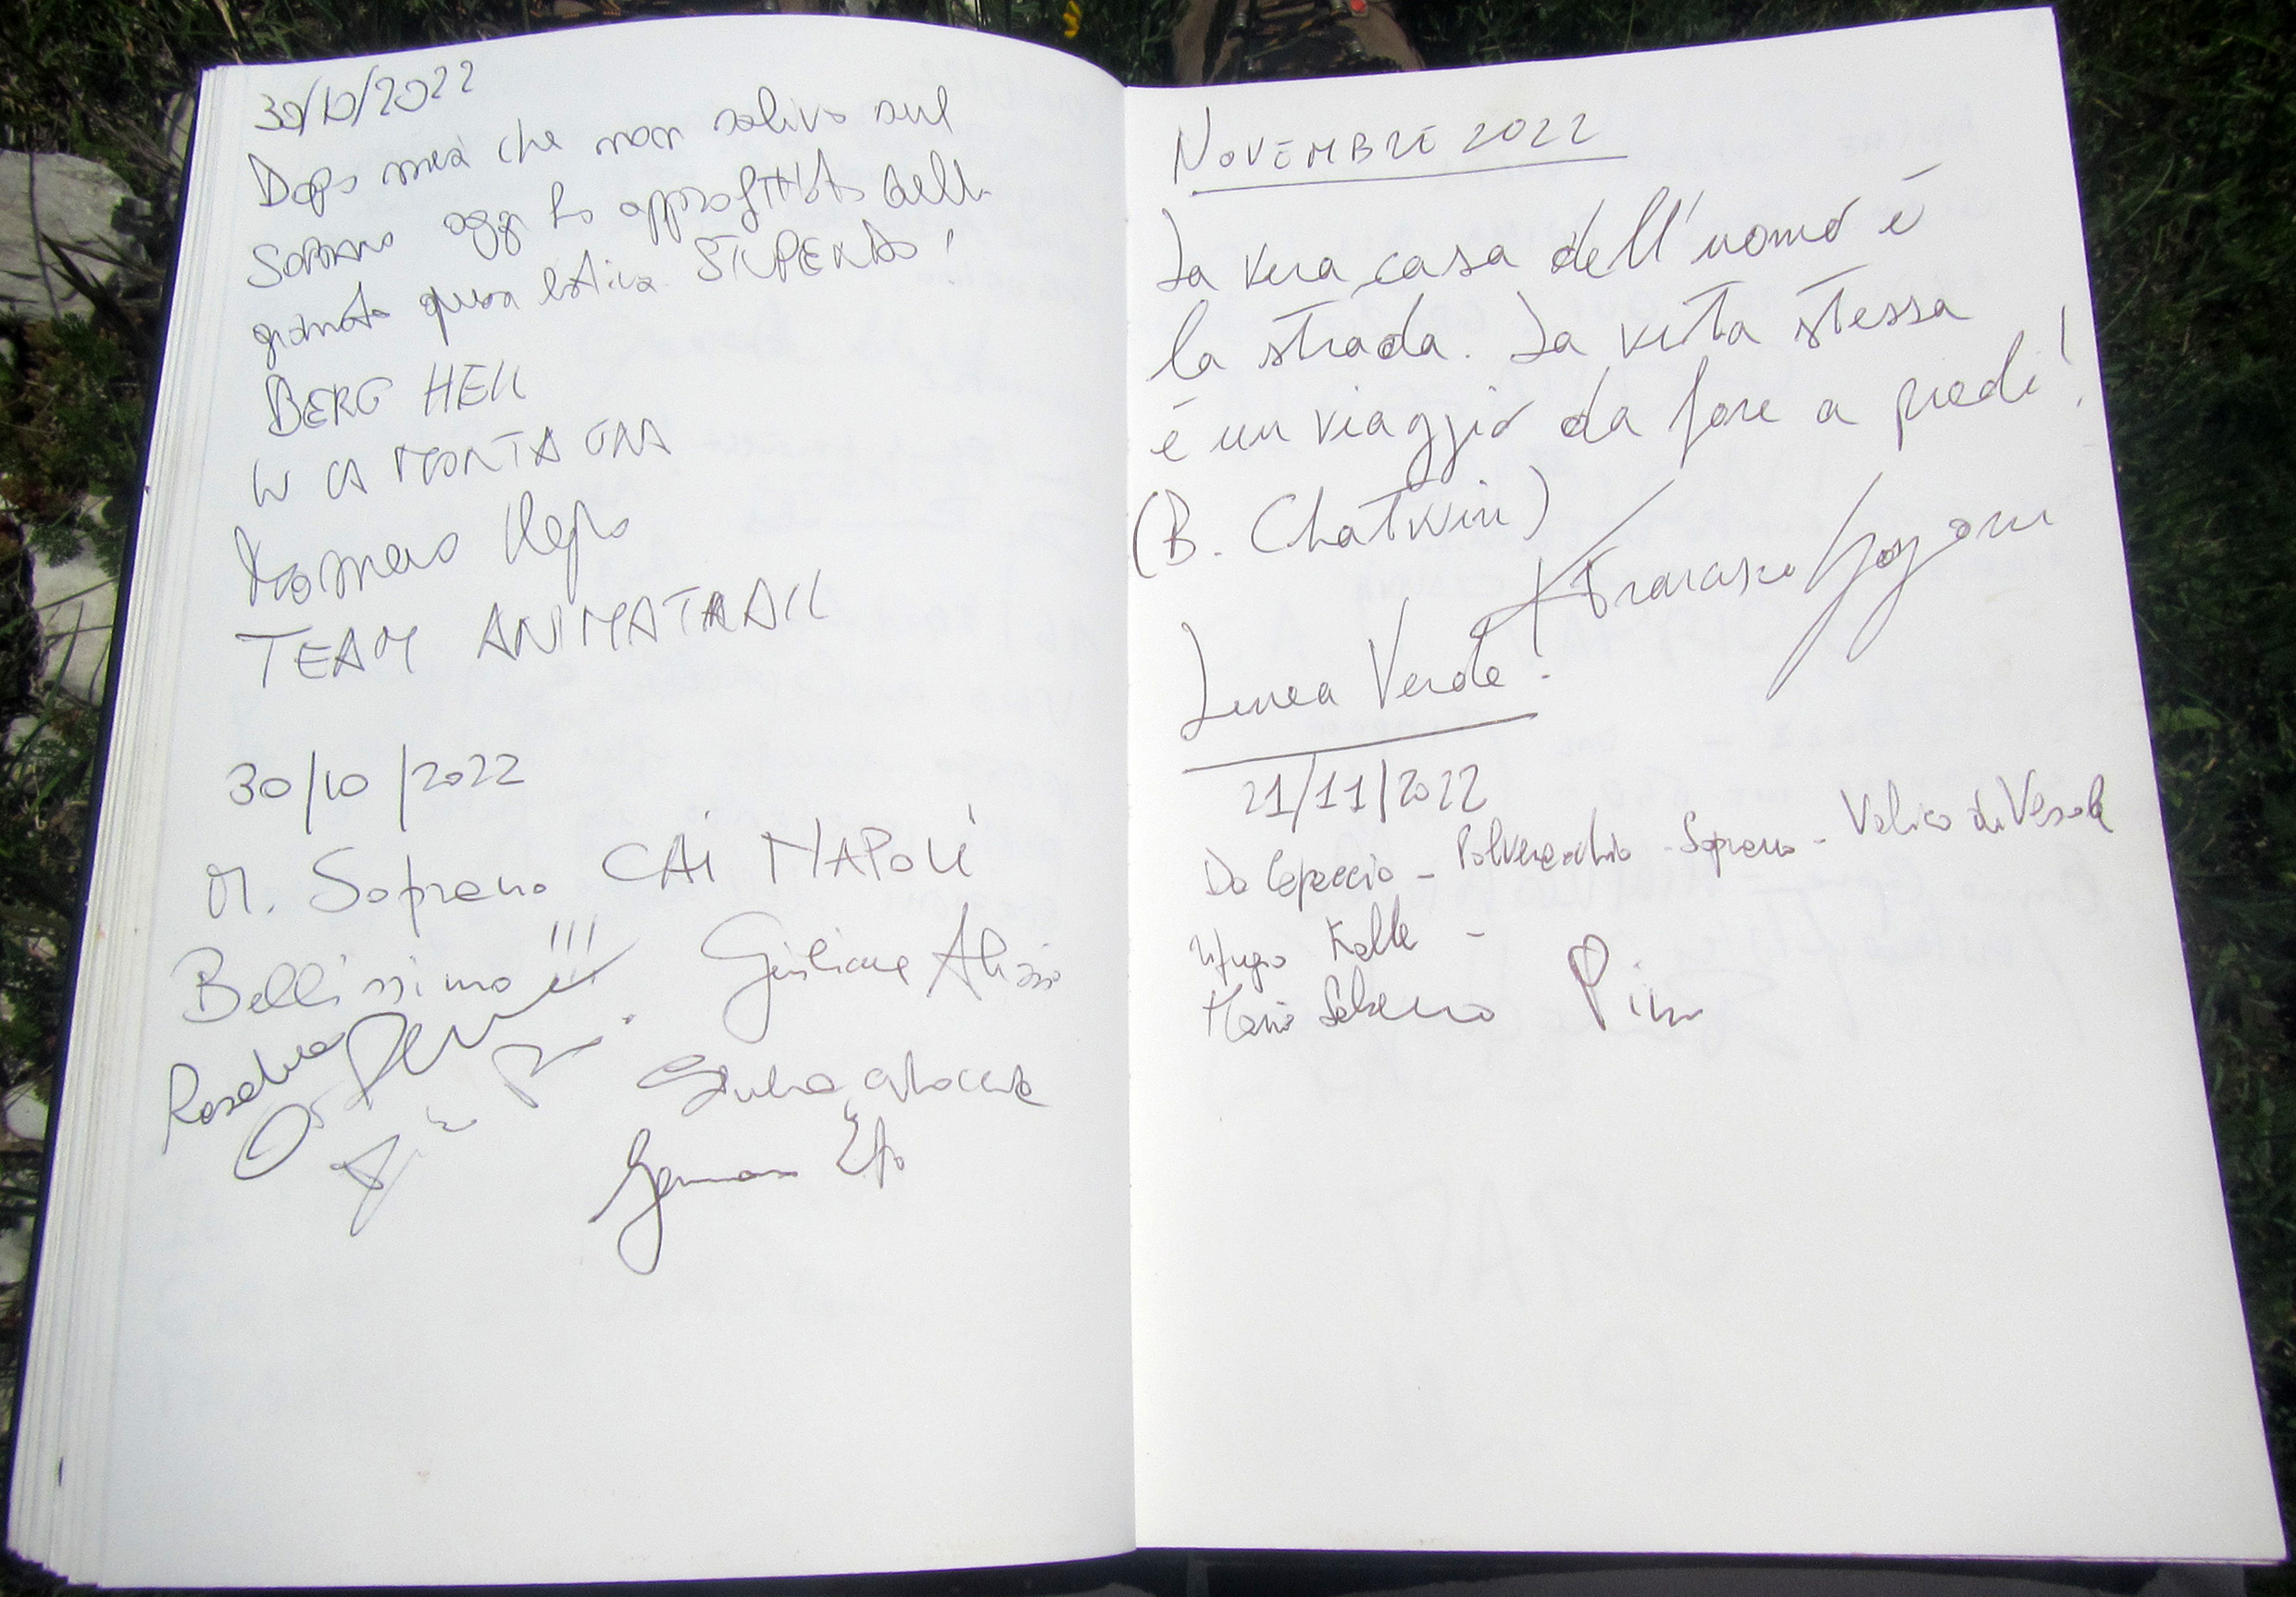 30/10/2022
Dopo mesi che non salivo sul
Soprano oggi ho approfittato della
giornata quasi estiva. STUPENDO!
BERG HEIL
W LA MONTAGNA
TEAM ANIMATRAIL
30/10/2022
M. Soprano CAI NAPOLI
Bellissimo!!!
Giuliana Alessio
Gennaro
NOVEMBRE 2022
La vera casa dell'uomo è
la strada. La vita stessa
è un viaggio da fare a piedi!
(B. Chatwin)
Linea Verde!
21/11/2022
Da Capaccio - Polveracchio - Soprano - Valico di Vesole
rifugio
Mario Pino